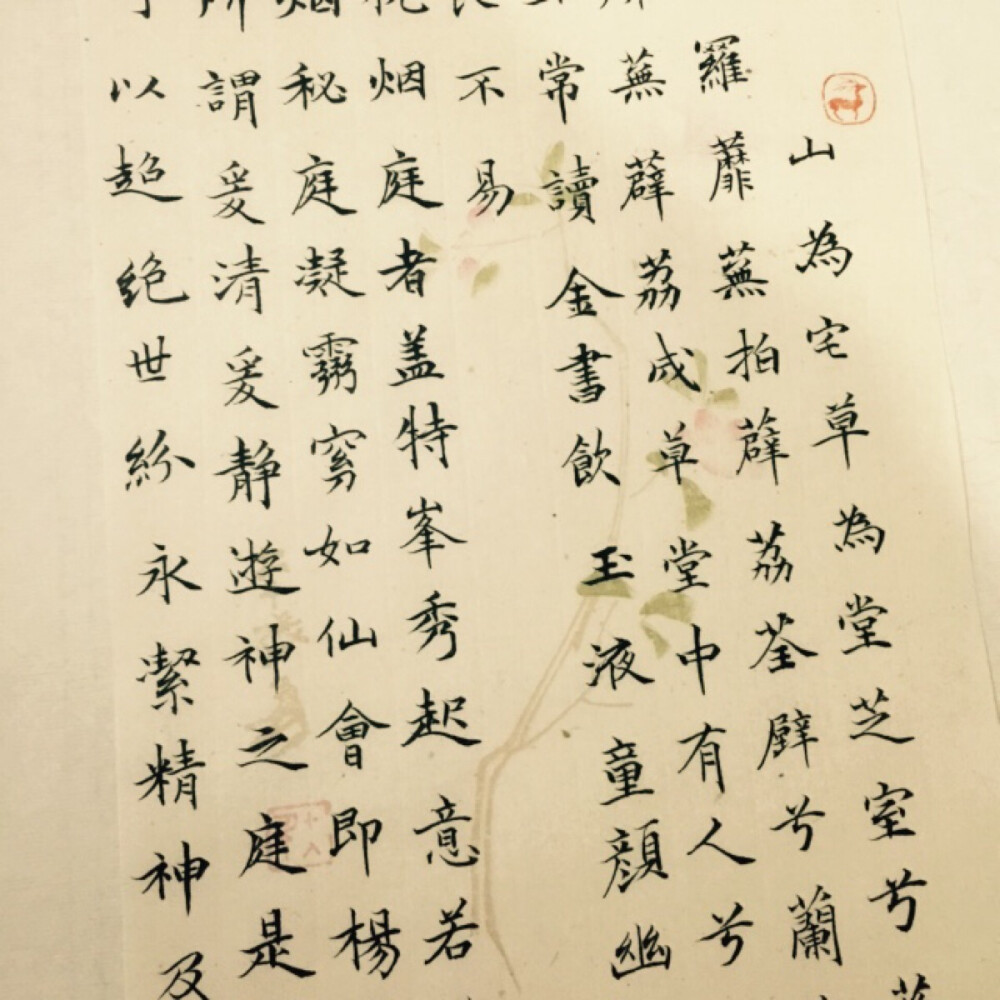 山為宅草為堂芝室兮
羅蘼蕪拍薜荔荃壁兮蘭
蕪薜荔成草堂中有人兮
常讀金書飲玉液童顏幽
不易
枕烟庭者盖特峯秀起意若
烟秘庭凝窅如仙會即楊
所謂爰清爰静遊神之庭是
以超絶世紛永絜精神及